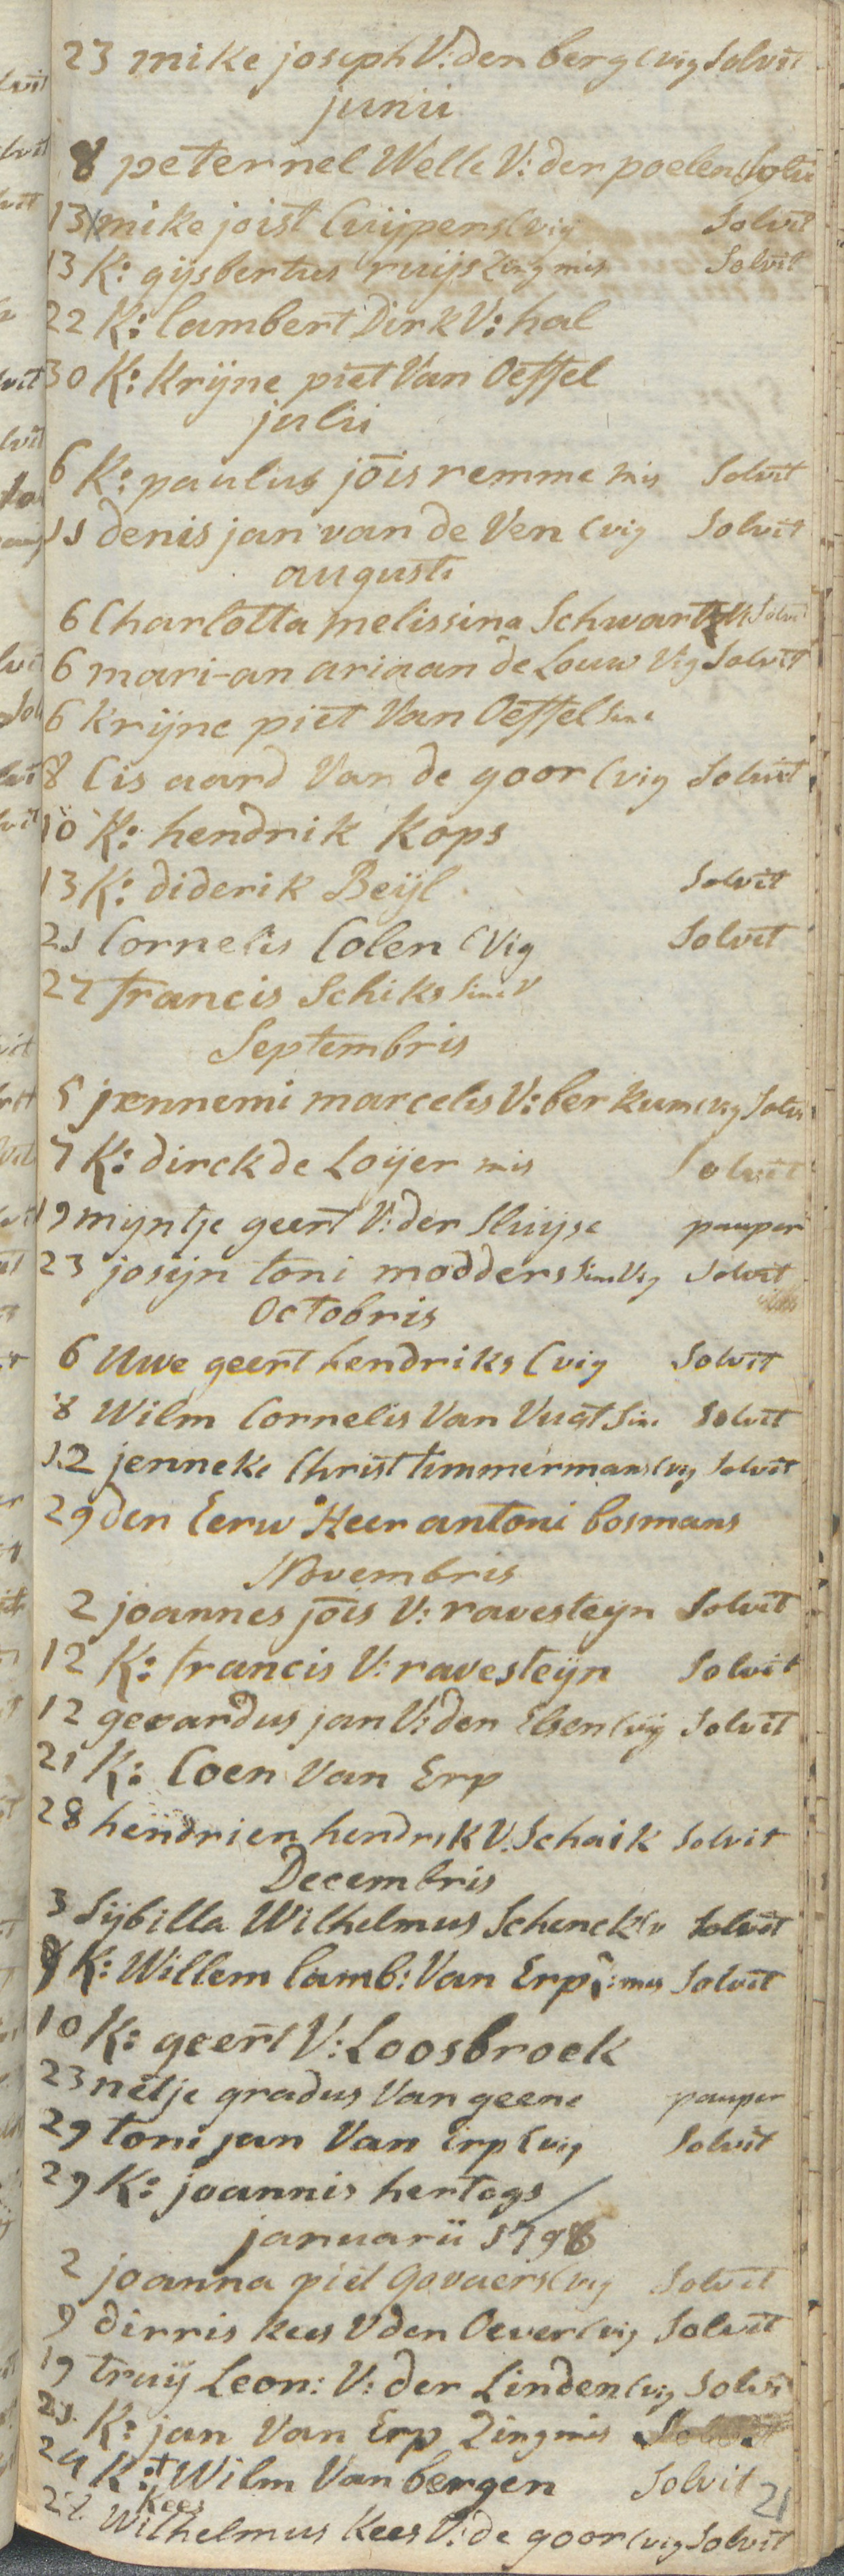 23 mike joseph V: den berg Cvig Solvit
junii
8 peternel Welle V: der poelen Solvit
13 mike joist Cuijpers Cvig Solvit
13 K: gijsbertus ruijs Zingmis Solvit
22 K: lambert Dirk V: hal
30 K: Krijne piet Van Oeffel
julii
6 K: paulus jōis remme mis Solvit
11 denis jan van de Ven Cvig Solvit
augusti
6 Charlotta melissina Schwartz Solvit
6 mari-an ariaan de Louw Vig Solvit
6 Krijne piet Van Oeffel Sine
8 Cis aard Van de goor Cvig Solvit
10 K: hendrik Kops
13 K: diderik Beijl Solvit
21 Cornelis Colen CVig Solvit
27 francis Schiks Sine V
Septembris
5 jennemi marcelis V: berkum Cvig Solvit
7 K: dirck de Loijer mis Solvit
19 mijntje geert V: der Sluijse pauper
23 josijn toni modders Sine Vig Solvit
Octobris
6 Uwe geert hendriks Cvig Solvit
8 Wilm Cornelis Van Vugt Sine Solvit
12 jenneke Christ timmermans Cvig Solvit
29 den Eerw Heer antoni bosmans
Novembris
2 joannes jōis V: ravesteijn Solvit
12 K: francis V: ravesteijn Solvit
12 gerardus jan V: den Elsen Cvig Solvit
21 K: Coen Van Erp
28 hendrien hendrik V. Schaik Solvit
Decembris
3 Sijbilla Wilhelmus Schenck Cv Solvit
9 K: Willem lamb: Van Erp Z: mis Solvit
10 K: geert V: Loosbroek
23 netje gradus Van geene pauper
29 toni jan Van Erp Cvig Solvit
29 K: joannis hertogs
januarii 1798
2 joanna piet Govaers Cvig Solvit
9 dirris kees V den Oever Cvig Solvit
19 truij Leon: V: der Linden Cvig Solvit
21 K: jan Van Erp Zingmis Solvit
24 K: Wilm Van bergen Solvit
Kees
Wilhelmus Kees V: de goor Cvig Solvit
21